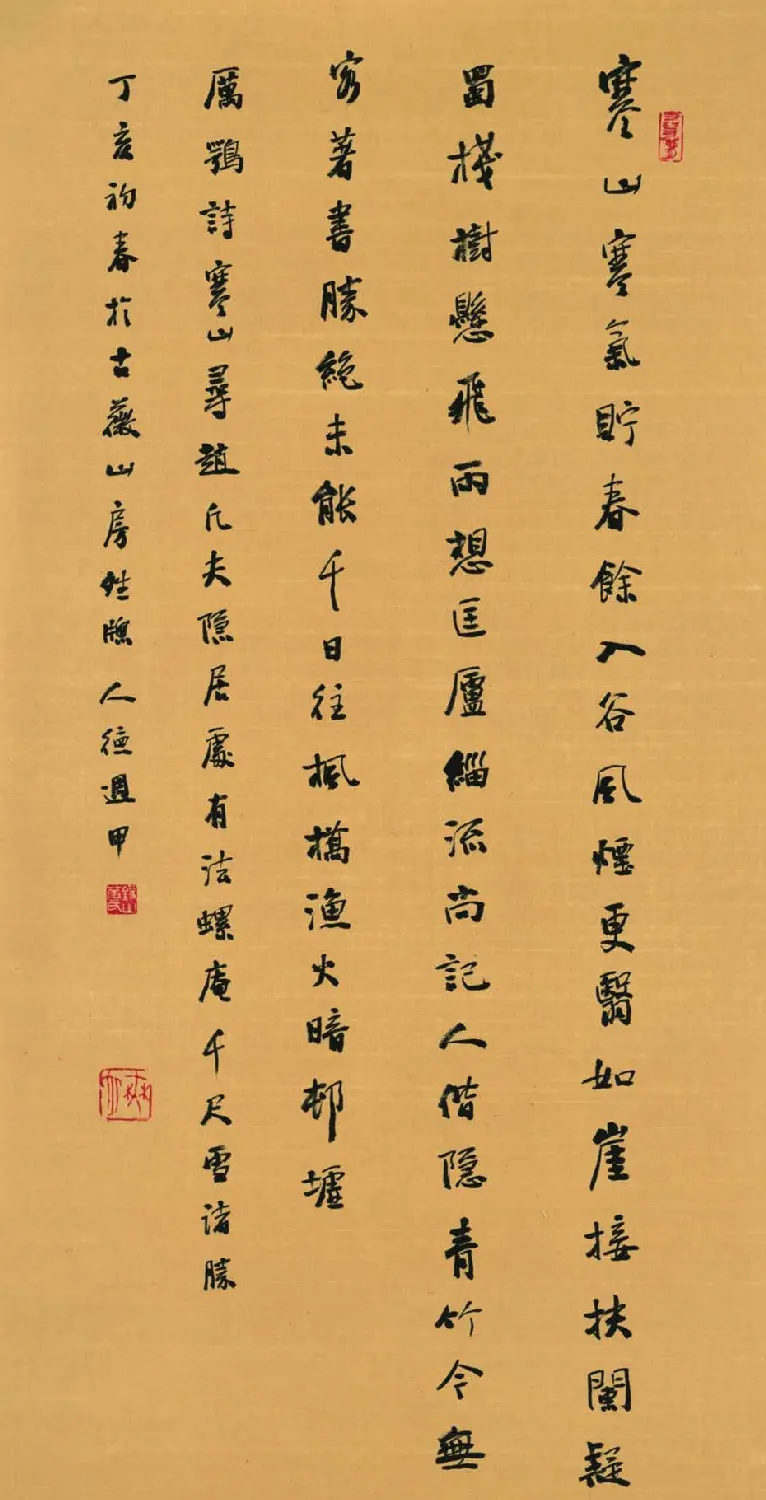 寒山寒氣貯春餘入谷風煙更翳如崖接扶闌疑
蜀棧樹懸飛雨想匡廬緇流尚記人偕隱青竹今無
客著書勝絕未能千日往楓橋漁火暗邨墟
厲鶚詩寒山尋趙凡夫隱居處有法螺庵千尺雪諸勝
丁亥初春於古薇山房 人德週甲